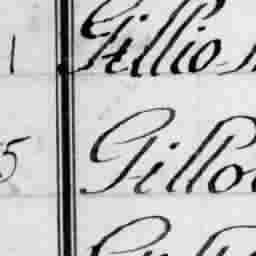 1 Gillio
5 Gillo